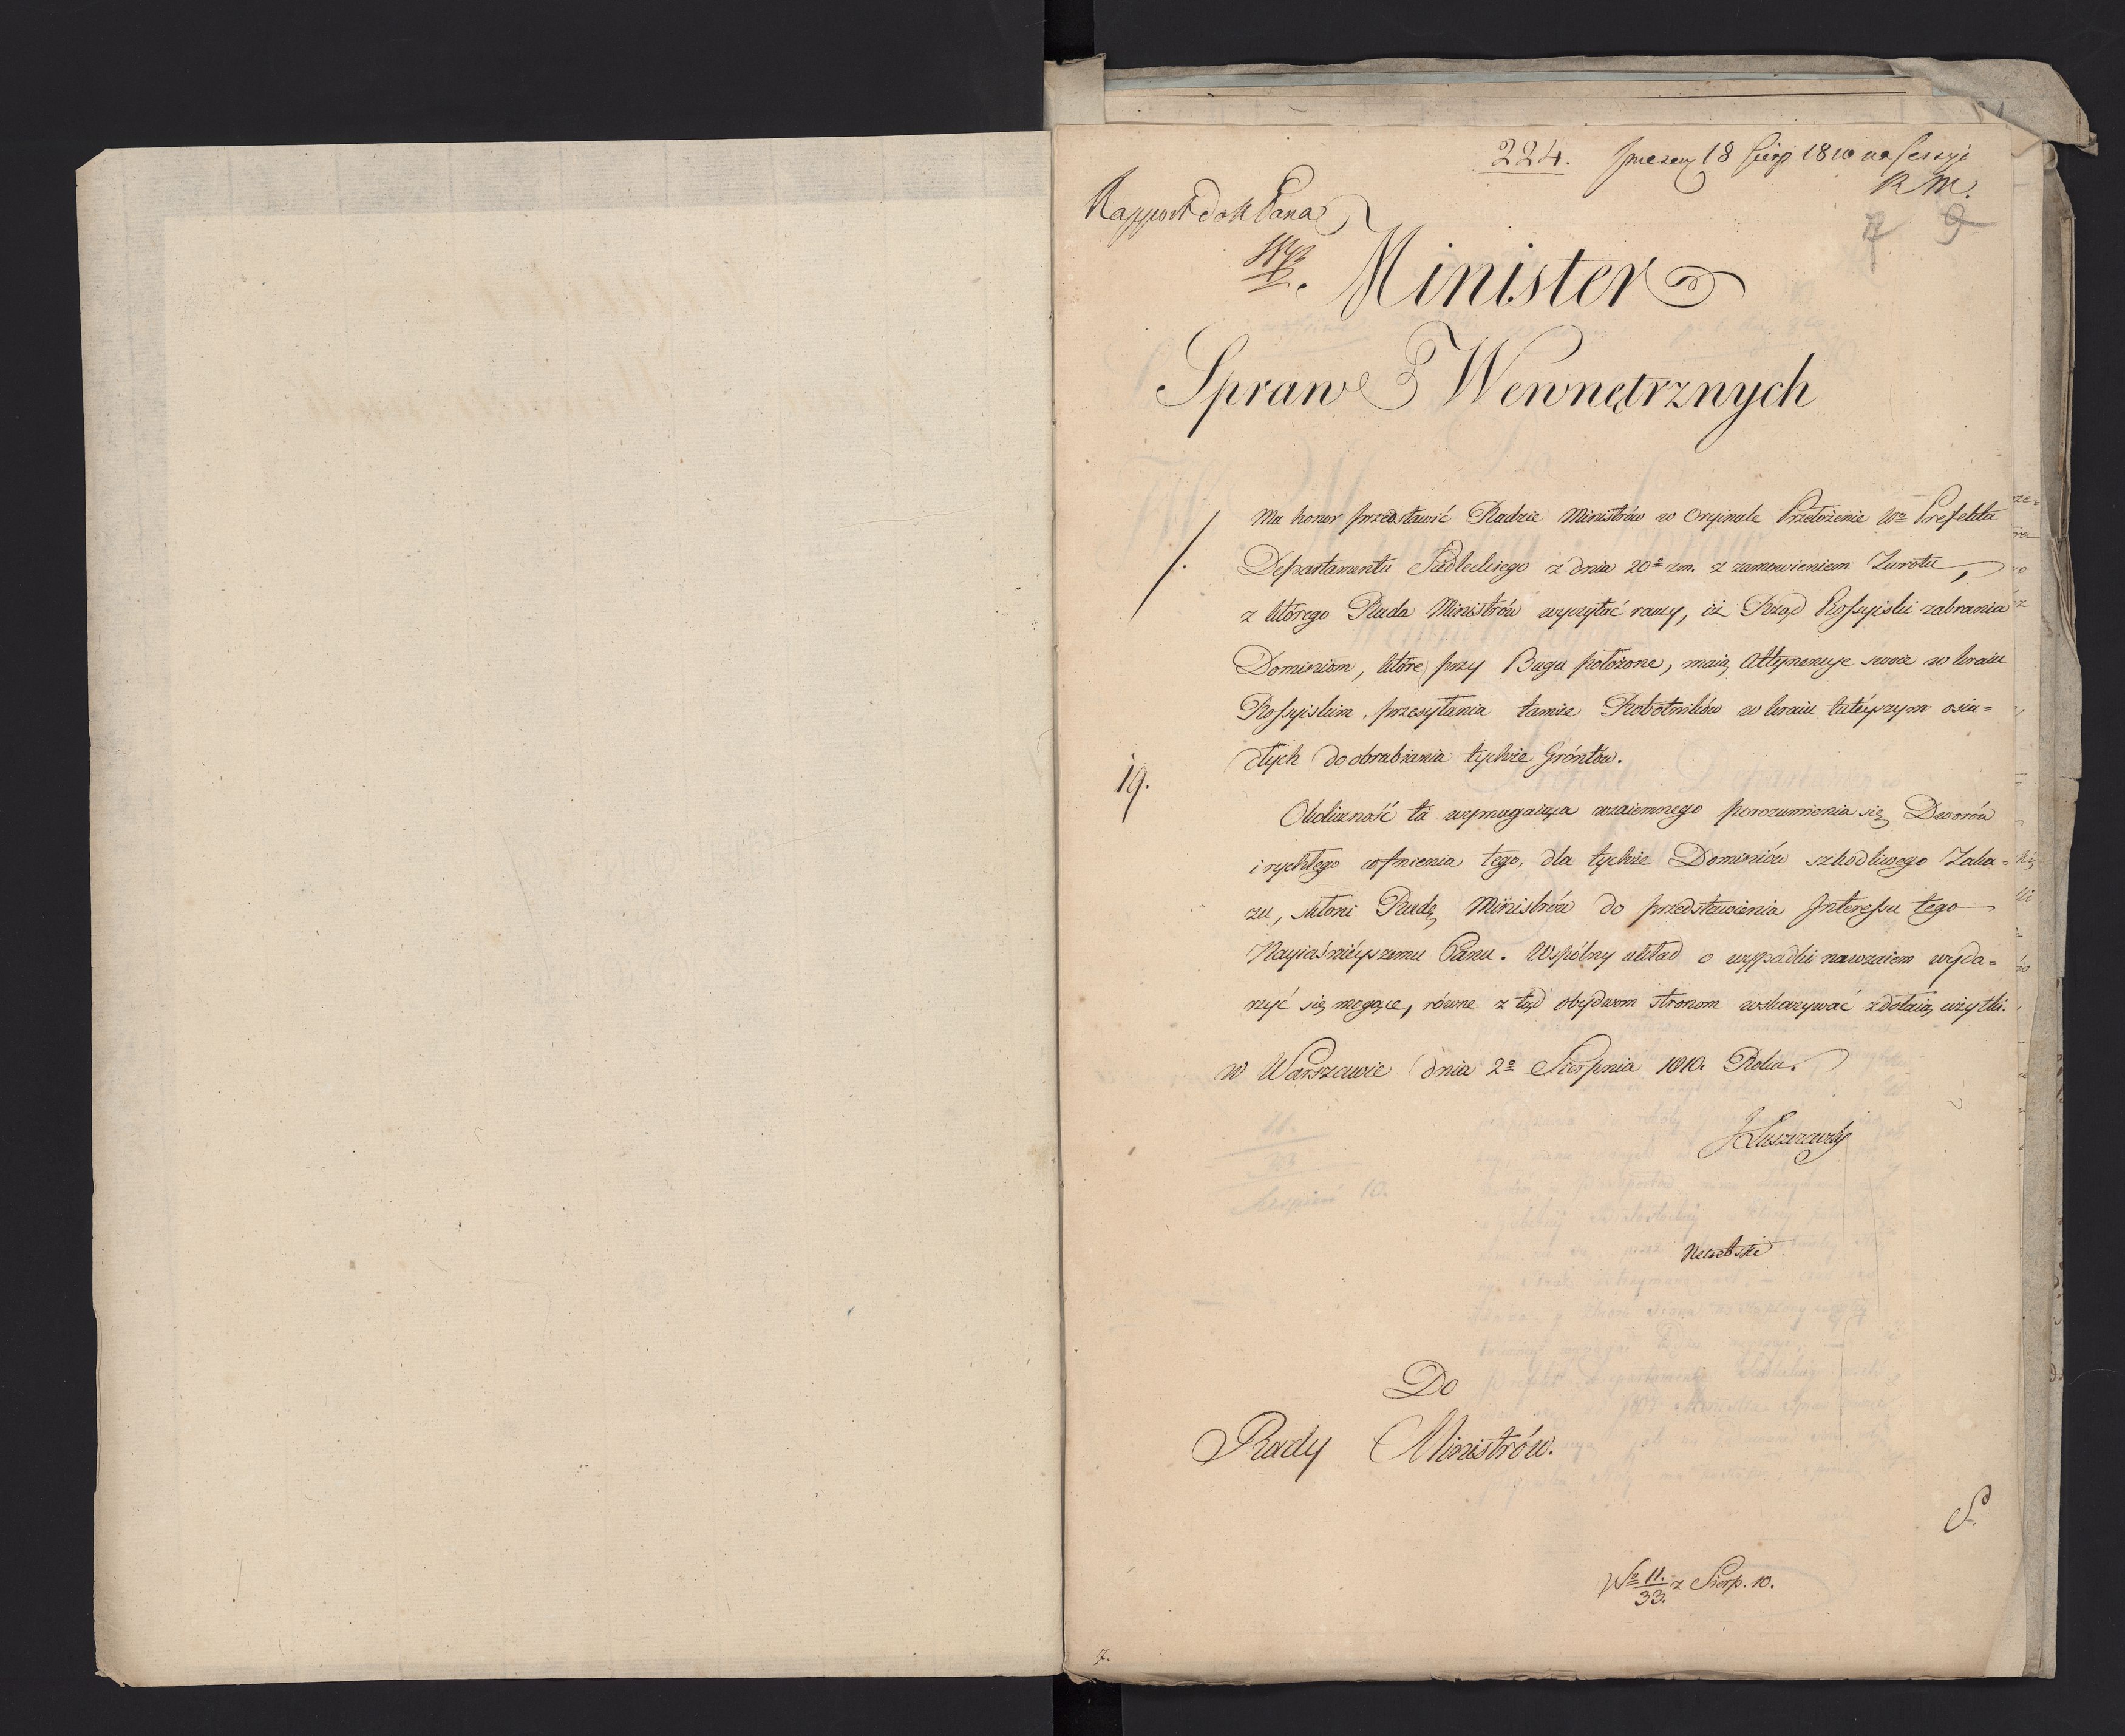 224. prezen 18 Sierp 1810 na Sessyi
R M.
7 9
Rapport do K Pana
Minister
Spraw Wewnętrznych
Ma honor przedstawić Radzie Ministrów w Oryinale Przełożenie Wo Prefekta
Departamentu Siedleckiego z dnia 20o z.m. z zamowieniem Zwrotu,
z którego Rada Ministrów wyczytać raczy, iż Rząd Rossyiski zabrania
Dominiom, które przy Bugu położone, maią Attynencye swoie w kraiu
Rossyiskim, przesyłania tamże Robotników w kraiu tuteyszym osia=
dłych do obrabiania tychże Gróntów.
19.
Okoliczność ta wymagaiąca wzaiemnego porozumienia się Dworów
i rychłego cofnienia tego, dla tychże Dominiów szkodliwego Zaka=
zu, skłoni Radę Ministrów do przedstawienia Interessu tego
Nayiaśnieyszemu Panu. Wspólny układ o wypadki nawzaiem wyda=
rzyć się mogące, równe z tąd obydwom stronom wskazywać zdołaią użytki.
w Warszawie dnia 2o Sierpnia 1810. Roku.
J Łuszczewsky
Do
Rady Ministrów.
S.
No 11./33. z Sierp. 10.
7.